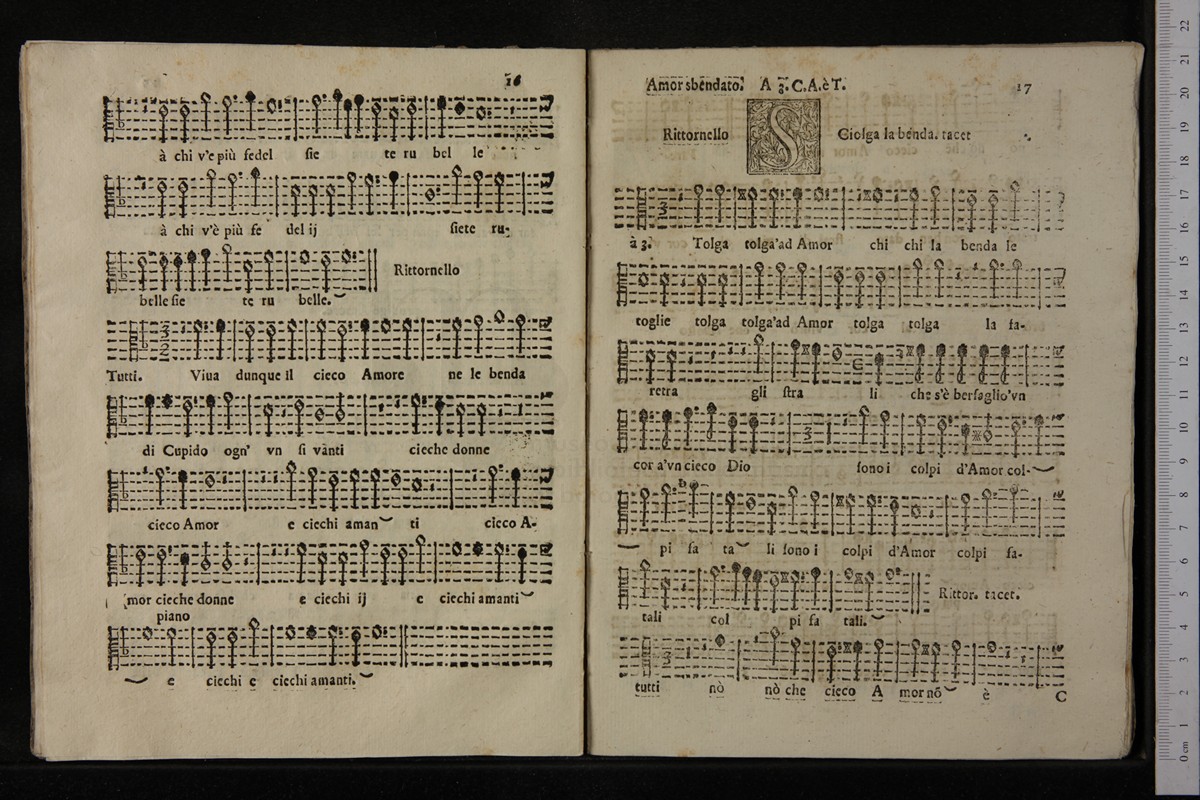 16
à chi v'e più sedel sie te ru bel le
à chi v'è più fe del ij siete ru-
belle sie te ru belle.
Rittornello
Tutti. Viua dunque il cieco Amore ne le benda
di Cupido ogn' vn si vanti cieche donne
cieco Amor e ciechi aman ti cieco A-
mor cieche donne e ciechi ij e ciechi amanti
piano
e ciechi e ciechi amanti.
Amor sbendato. A 3. C. A. è T. 17
Rittornello SCiolga la benda. tacet
à 3. Tolga tolga'ad Amor chi chi la benda se
toglie tolga tolga'ad Amor tolga tolga la fa-
retra gli stra li che s'è bersaglio'vn
cor a'vn cieco Dio sono i colpi d'Amor col-
pi fa ta li sono i colpi d'Amor colpi fa-
tali col pi fa tali.
Rittor. tacet.
tutti nò nò che cieco A mor nō è
C
22
21
20
19
18
17
16
15
14
13
12
11
10
9
8
7
6
5
4
3
2
1
0 cm